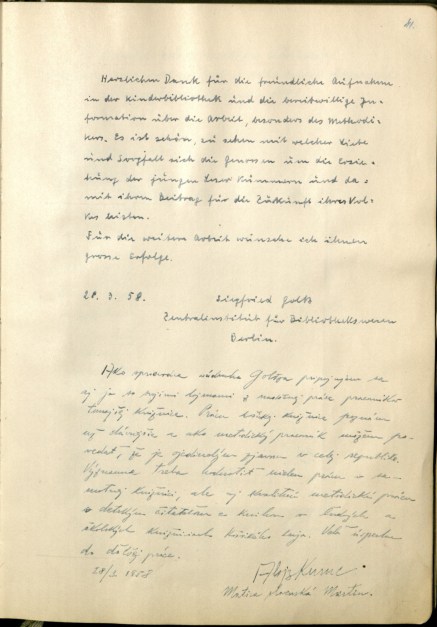 81.
Herzlichen Dank für die freundliche Aufnahme
in der Kinderbibliothek und die bereitwillige In-
formation über die Arbeit, besonders des Methodi-
kers. Es ist schön, zu sehen mit welcher Liebe
und Sorgfalt sich die Genossen um die Erzie-
hung der jungen Leser kümmern und da-
mit ihren Beitrag für die Zukunft ihres Vol-
kes leisten.
Für die weitere Arbeit wünsche ich ihnen
grosse Erfolge.
28. 3. 58.
Siegfried
Zentralinstitut für Bibliothekswesen
Berlin.
Ako sprievodca súdruha pripojujem sa
aj ja so svojimi dojmami z práce pracovníkov
tunajšej knižnice. Prácu knižnice poznám
už a ako metodický pracovník môžem po-
vedať, že je ojedinelým zjavom v celej republike.
Významne treba hodnotiť nielen prácu v sa-
motnej knižnici, ale aj metodickú prácu
s detským čitateľom a v
knižniciach Košického kraja. úspechov
do ďalšej práce.
28/3 1958
Matica slovenská Martin.